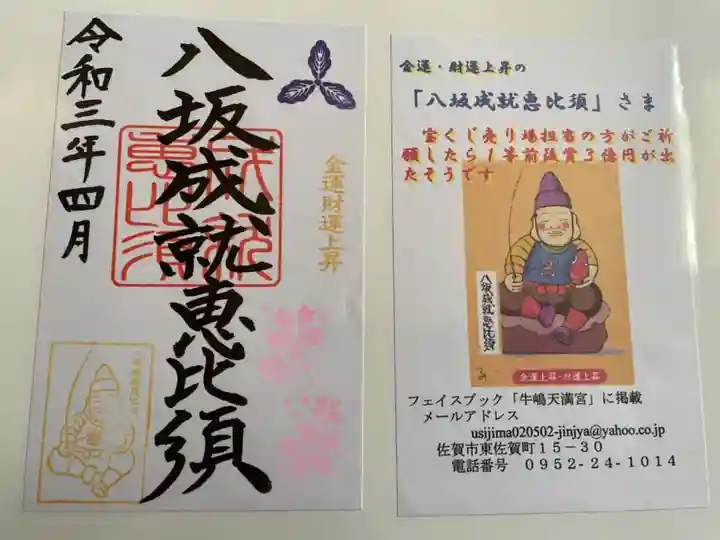 令和三年四月
八坂成就恵比須
金運財運上昇
成就
恵比須
金運・財運上昇の
「八坂成就恵比須」さま
宝くじ売り場担当の方がご祈
願したら1等前後賞3億円が出
たそうです
八坂成就恵比須
金運上昇・財運上昇
フェイスブック「牛嶋天満宮」に掲載
メールアドレス
usijima020502-jinjya@yahoo.co.jp
佐賀市東佐賀町15-30
電話番号 0952-24-1014